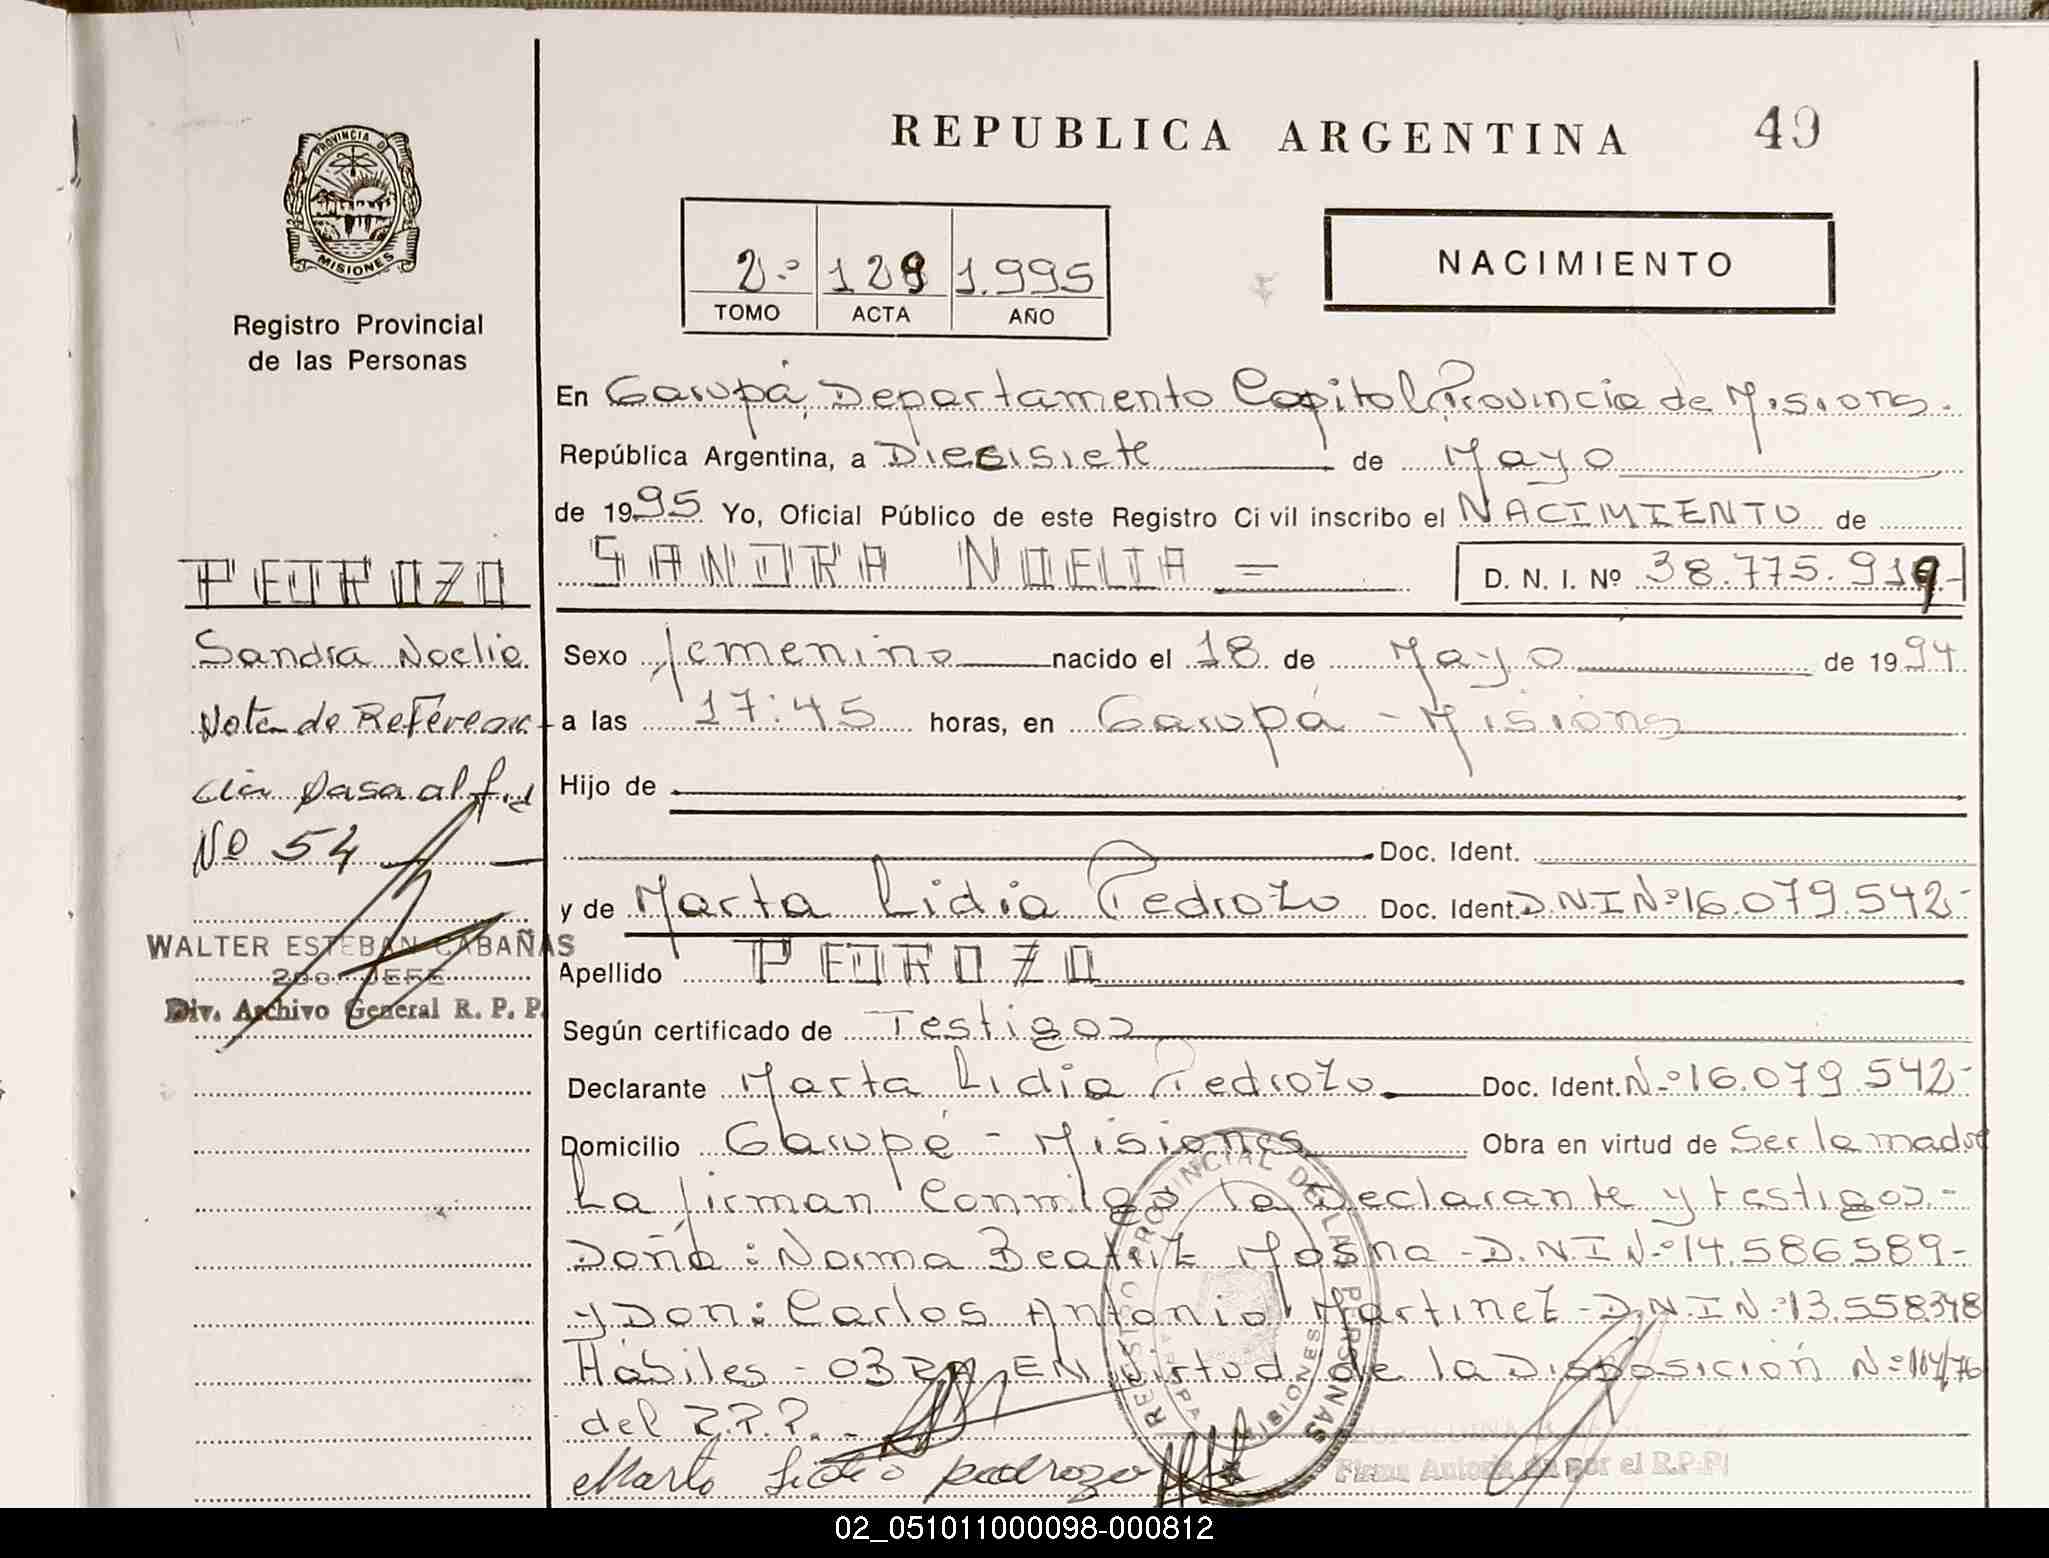 REPUBLICA ARGENTINA 49
PROVINCIA DE MISIONES
Registro Provincial
de las Personas
2º 129 1.995
TOMO ACTA AÑO
NACIMIENTO
En Garupá, Departamento Capital, Provincia de Misiones.
República Argentina, a Diecisiete de Mayo
de 1995 Yo, Oficial Público de este Registro Civil inscribo el NACIMIENTO de
SANDRA NOELIA = D. N. I. Nº 38.775.919-
PEDROZO
Sandra Noelia
Nota de Referen-
cia pasa al
Nº 54
WALTER ESTEBAN CABAÑAS
2do. JEFE
Div. Archivo General R. P. P.
Sexo femenino nacido el 18 de Mayo de 1994
a las 17:45 horas, en Garupá - Misiones
Hijo de
Doc. Ident.
y de Marta Lidia Pedrozo Doc. Ident. D.N.I Nº 16.079.542-
Apellido PEDROZO
Según certificado de Testigos
Declarante Marta Lidia Pedrozo Doc. Ident. Nº 16.079.542-
Domicilio Garupá - Misiones Obra en virtud de Ser la madre
La firman Conmigo la Declarante y testigos.-
Doña: Norma Beatriz D.N.I Nº 14.586.589-
y Don: Carlos Antonio Martinez - D.N.I Nº 13.558.348
Hábiles - OBRA EN virtud de la Disposición Nº 104/76
del R.P.P. -
Marta Lidia pedrozo
REGISTRO PROVINCIAL DE LAS PERSONAS
MISIONES
Firma Autorizada por el R.P.P.
02_051011000098-000812